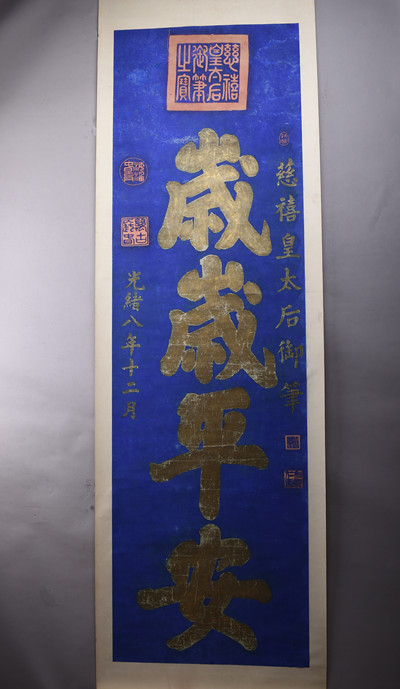 慈禧皇太后御筆之寶
慈禧皇太后御筆
歲歲平安
光緒八年十二月